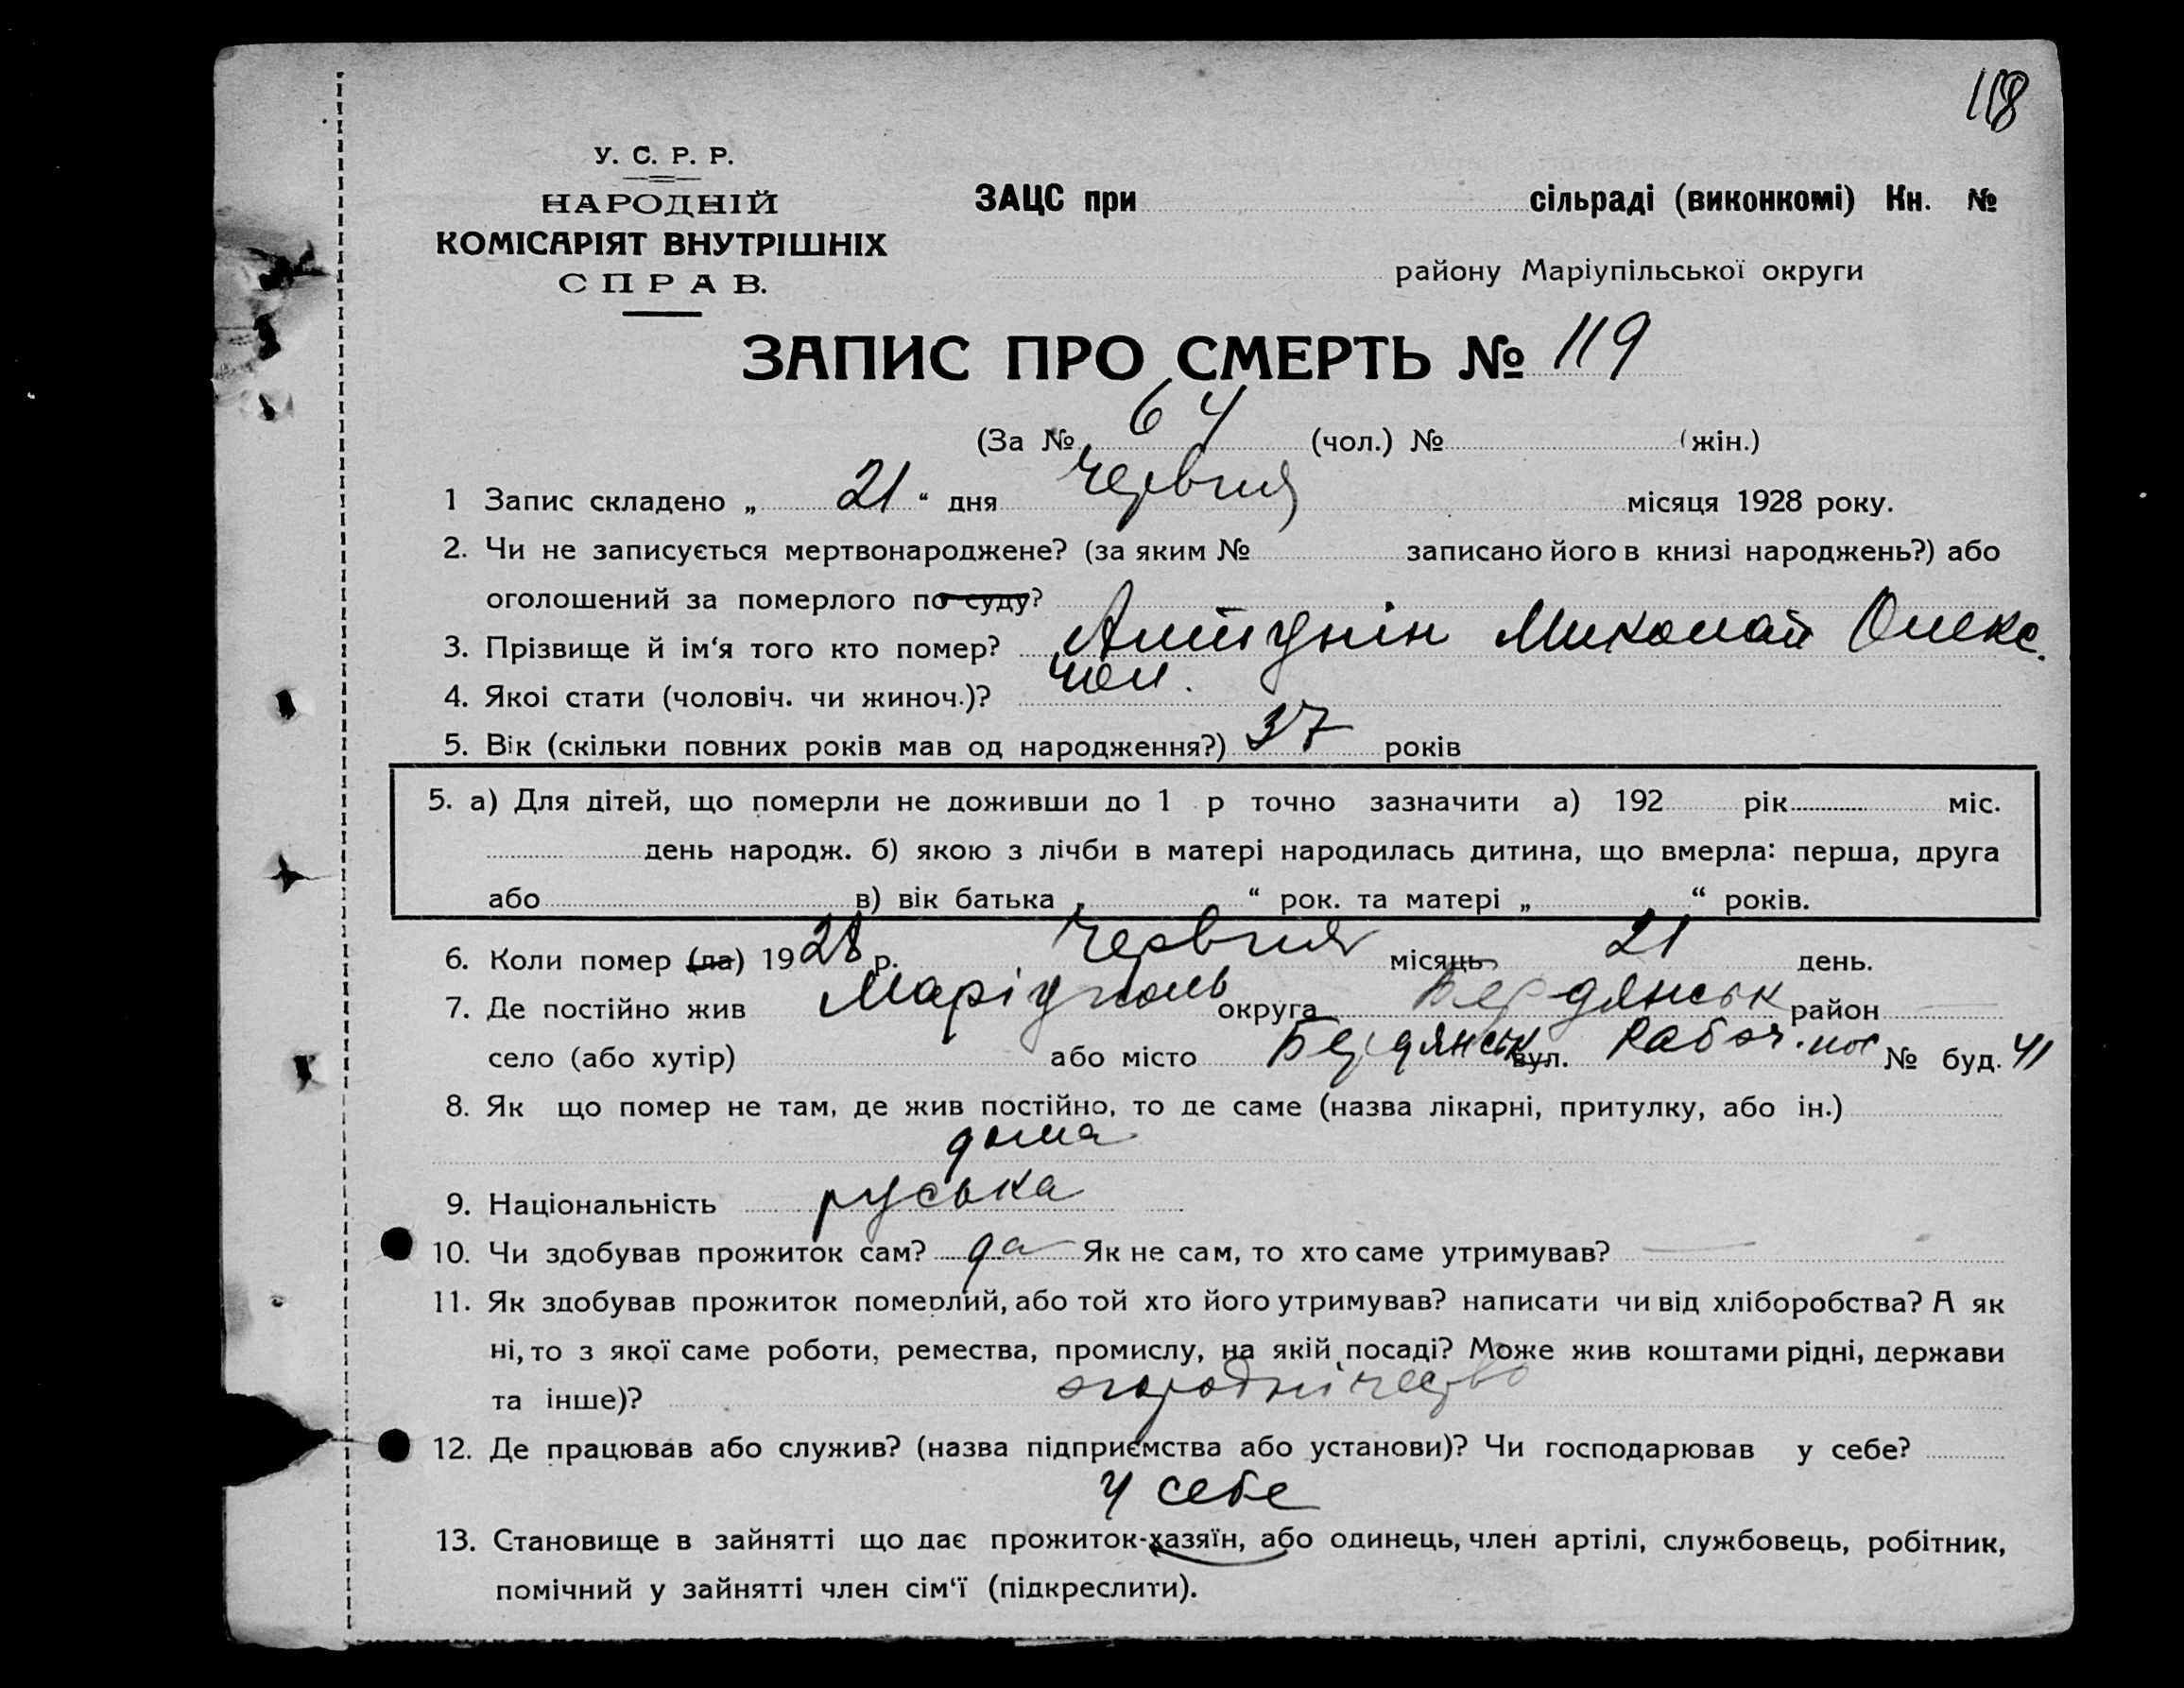 118
У. С. Р. Р.
НАРОДНІЙ
КОМІСАРІЯТ ВНУТРІШНІХ
СПРАВ.
ЗАЦС при сільраді (виконкомі) Кн. №
району Маріупільської округи
ЗАПИС ПРО СМЕРТЬ № 119
(За № 64 (чол.) № (жін.)
1 Запис складено „ 21 “ дня Червня місяця 1928 року.
2. Чи не записується мертвонароджене? (за яким № записано його в книзі народжень?) або
оголошений за померлого по суду?
3. Прізвище й ім‘я того кто помер? Миколай Олекс.
4. Якоі стати (чоловіч. чи жиноч.)? чол.
5. Вік (скільки повних років мав од народження?) 37 років
5. а) Для дітей, що померли не доживши до 1 р точно зазначити а) 192 рік міс.
день народж. б) якою з лічби в матері народилась дитина, що вмерла: перша, друга
або в) вік батька „ “ рок. та матері „ “ років.
6. Коли помер (ла) 1928 р. Червня місяць 21 день.
7. Де постійно жив Маріуполь округа Бердянськ район
село (або хутір) або місто Бердянськ вул. Рабоч. пос № буд. 41
8. Як що помер не там, де жив постійно, то де саме (назва лікарні, притулку, або ін.)
дома
9. Національність руська
10. Чи здобував прожиток сам? да Як не сам, то хто саме утримував? —
11. Як здобував прожиток померлий, або той хто його утримував? написати чи від хліборобства? А як
ні, то з якої саме роботи, ремества, промислу, на якій посаді? Може жив коштами рідні, держави
та інше)? огородничество
12. Де працював або служив? (назва підприємства або установи)? Чи господарював у себе?
у себе
13. Становище в зайнятті що дає прожиток-хазяїн, або одинець, член артілі, службовець, робітник,
помічний у зайнятті член сім‘ї (підкреслити).